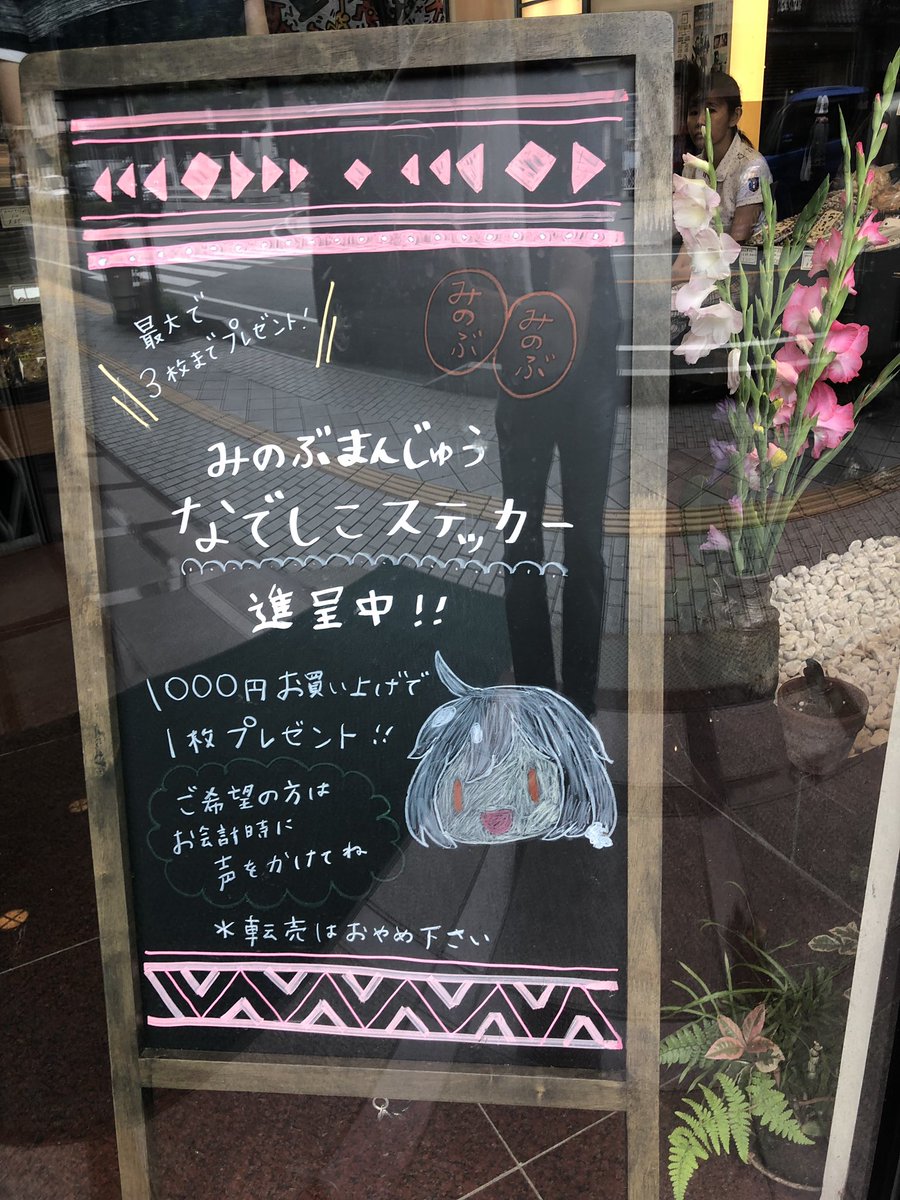 最大で
3枚までプレゼント!
みのぶ
みのぶ
みのぶまんじゅう
なでしこステッカー
進呈中!!
1000円お買い上げで
1枚プレゼント!!
ご希望の方は
お会計時に
声をかけてね
*転売はおやめ下さい